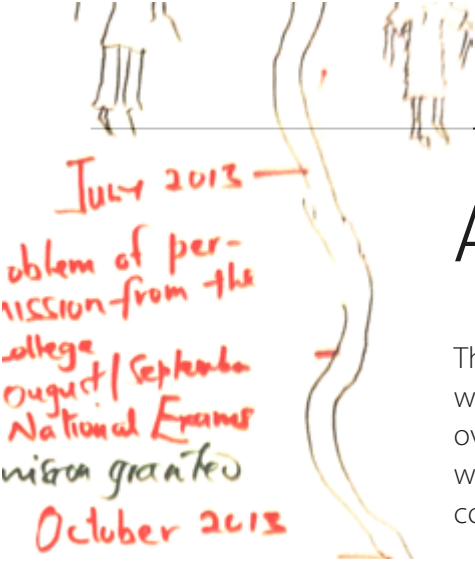 July 2013
oblem of per-
mission from the
ollege
ougust/September
National Exams
mission granted
October 2013
A
Th
w
ov
w
co